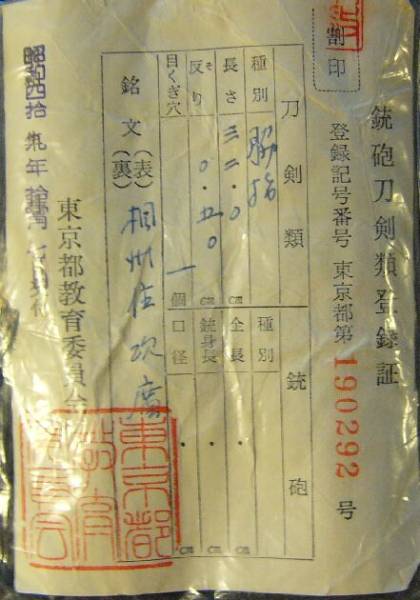 銃砲刀剣類登録証
登録記号番号 東京都第 190292 号
割印
刀剣類
種別 脇指
長さ 三二・〇 cm
そり
反り 〇・五〇 cm
目くぎ穴 一 個
銘文 (表) 相州住次廣
(裏)
銃砲
種別
全長 ・ cm
銃身長 ・ cm
口径 ・ cm
昭和四拾九年
東京都教育委員会
東京都教育委員会